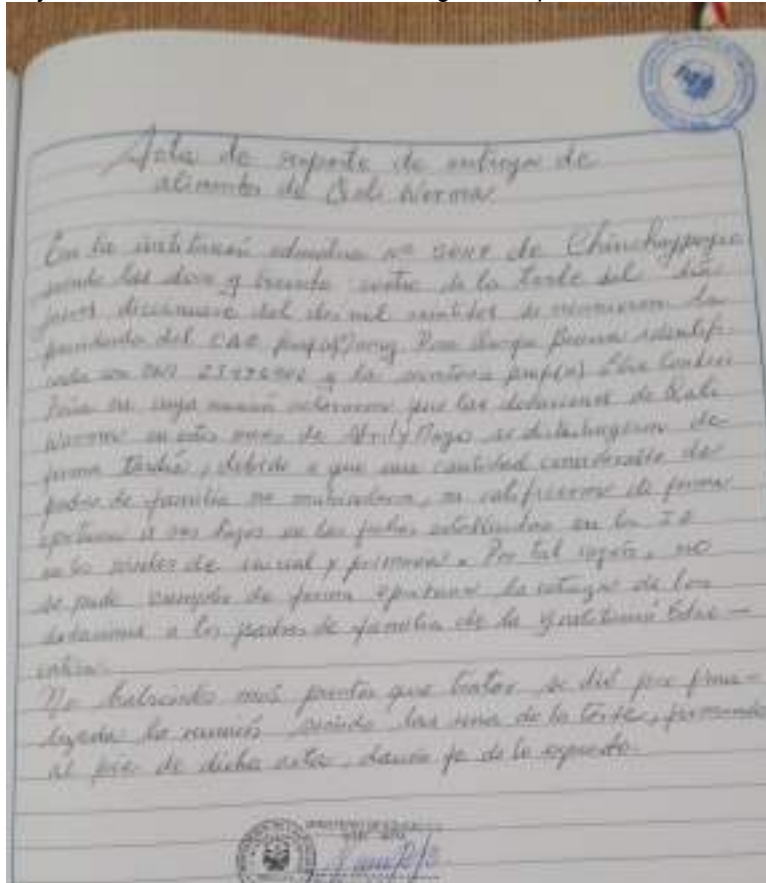 Acta de reporte de entrega de
alimentos de Qali Warma.
En la institución educativa N° de Chinchaypujio
siendo las doce y treinta de la tarde del día
jueves diecinueve del dos mil veintidos se reunieron la
presidenta del CAE prof(a) identifi-
cada con DNI y la secretaria prof(a)
en cuya reunión que las donaciones de Qali
Warma en estos meses de Abril y Mayo se distribuyeron de
forma tardía, debido a que una cantidad considerable de
padres de familia no matricularon, ni ratificaron de forma
oportuna a sus hijos en las fechas establecidas en la IE
en los niveles de inicial y primaria. Por tal razón, no
se pudo cumplir de forma oportuna la entrega de los
donaciones a los padres de familia de la Institución Edu-
cativa.
No habiendo más puntos que tratar se dió por fina-
lizada la reunión siendo las una de la tarde, firmando
al pie de dicha acta, dando fe de lo expuesto.